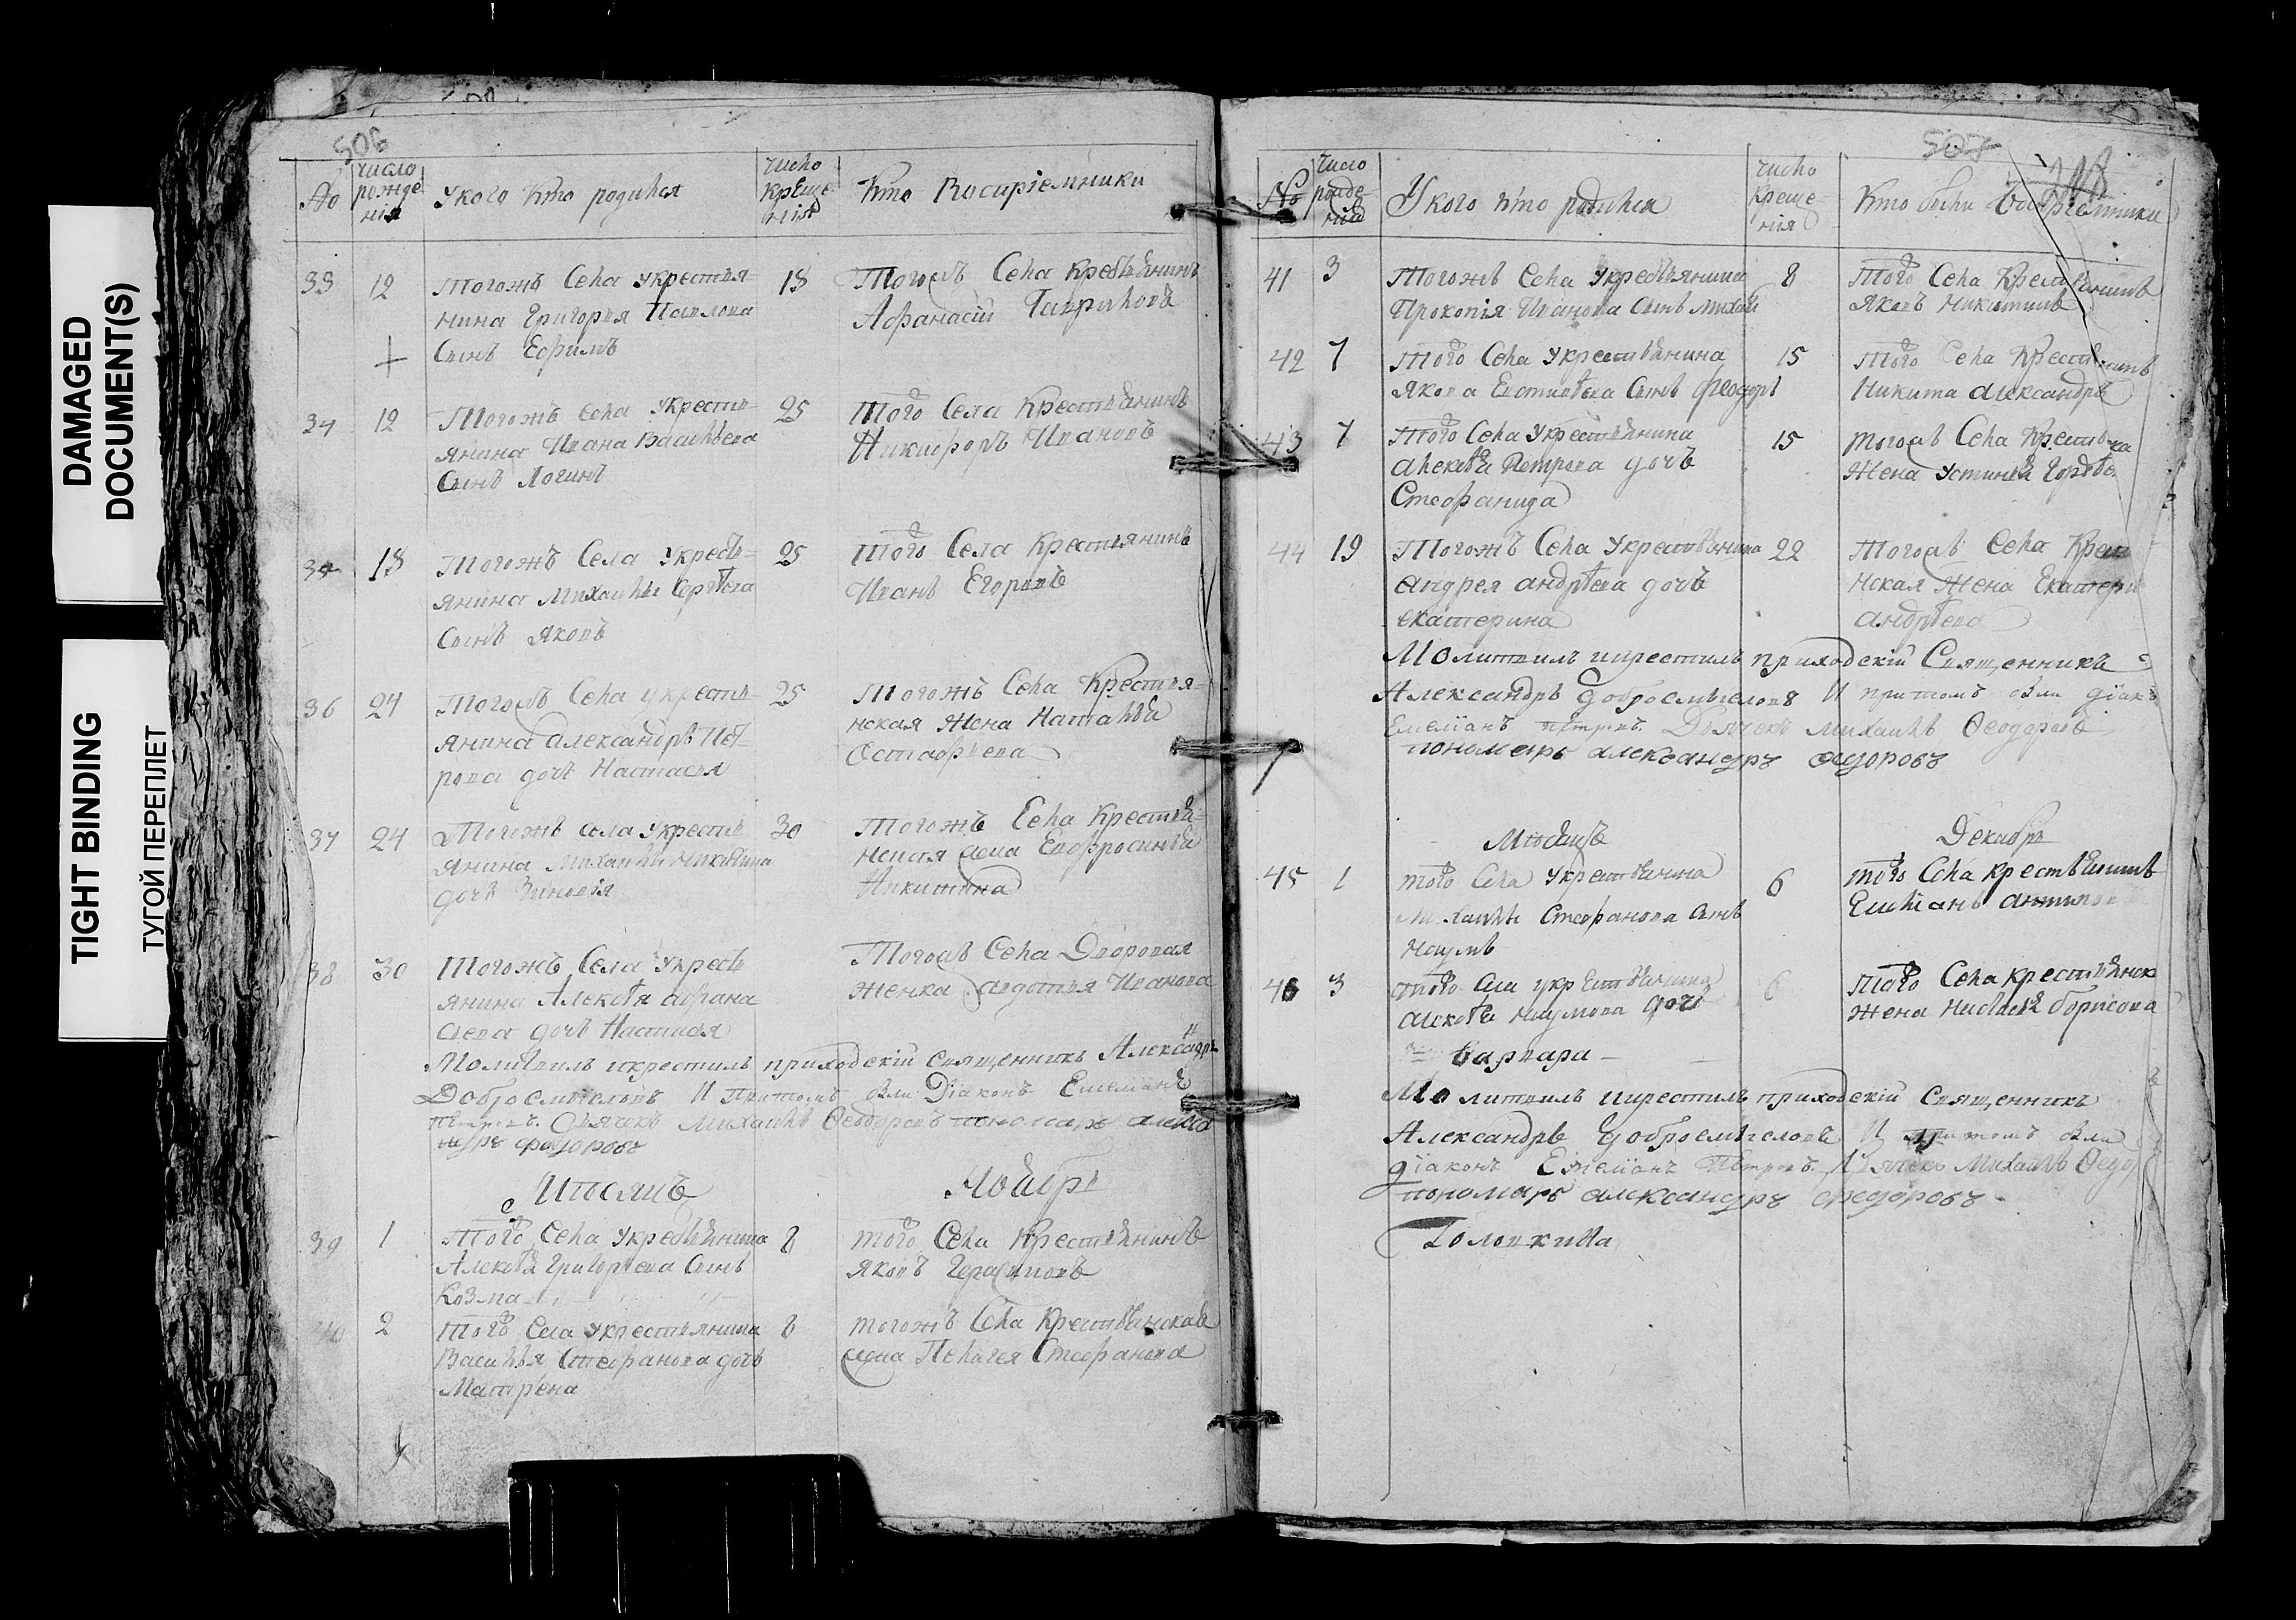 DAMAGED
DOCUMENT(S)
TIGHT BINDING
ТУГОЙ ПЕРЕПЛЕТ
506
No
число
рожде
нія
У кого кто родился
число
креще
нія
кто Восиріемники
33 12 Тогожъ Села укрестья
нина Григорья Павлова
Сынъ Ефимъ
18 Тогожъ Села Крестьянинъ
Афанасій Гавриловъ
34 12 Тогожъ села укресть
янина Ивана Васильева
Сынъ Логинъ
25 Того Села Крестьянинъ
Никифоръ Ивановъ
18 Тогожъ Села укресть
янина Михайлы Сергѣева
Сынъ Яковъ
25 Того Села Крестьянинъ
Иванъ Егоровъ
36 24 Тогожъ Села укресть
янина Александръ Пет
рова дочь Настасья
25 Тогожъ Села Крестья
нская жена Наталья
Остафьева
37 24 Тогожъ села укресть
янина Михайлы Никитина
дочь Зиновія
30 Тогожъ Села Крестья
жена Евфросинья
Никитина
38 30 Тогожъ Села укресть
янина Алексѣя Афана
сьева дочь Настасья
Тогожъ Села Дворовая
женка Авдотья Иванова
Молитвилъ икрестилъ приходскій священникъ Александръ
Добросмысловъ И притомъ были Діаконъ Емеліанъ
Петровъ. Дьячекъ Михайлъ Ѳеодоровъ пономарь алекса
ндръ фѣдоровъ
Мѣсяцъ Ноябрь
39 1 Того Села укрестьянина
Алексѣя Григорьева Сынъ
Козма
8 того Села Крестьянинъ
Яковъ Герасимовъ
40 2 Того Села укрестьянина
Василья Стефанова дочь
Матрена
8 тогожъ Села Крестьянская
жена Пелагея Стефанова
507
No
число
рожде
нія
У кого кто родился
число
креще
нія
Кто были Восріемники
41 3 Тогожъ Села укрестьянина
Прокопія Иванова Сынъ Михай
8 Того Села Крестьянинъ
Яковъ Никитинъ
42 7 Того Села укрестьянина
Якова Евстиѳѣева Сынъ феодоръ
15 Того Села Крестьянинъ
Никита александръ
43 7 Того Села укрестьянина
алексѣя Петрова дочь
Стефанида
15 Тогожъ Села Крестьянка
жена Устинья Гордѣева
44 19 Тогожъ Села укрестьянина
андрея андрѣева дочь
екатерина
22 Тогожъ Села Крестья
нская жена Екатери
андрѣева
Молитвилъ икрестилъ приходскій Священникъ
Александръ добросмысловъ И притомъ были діакъ
Емеліанъ петровъ. Дьячекъ михайлъ Ѳеодоровъ
пономарь александръ фѣдоровъ
Мѣсяцъ Декабрь
45 1 того Села укрестьянина
Михайлы Стефанова Сынъ
Наумъ
6 того Села крестьянинъ
Емеліанъ антипов
46 3 того Села укрестьянина
алексѣя наумова дочь
Варвара
6 того Села крестьянск
жена настасья борисова
Молитвилъ икрестилъ приходскій Священникъ
Александръ добросмысловъ И притомъ были
діаконъ Емеліанъ Петровъ. Дьячекъ Михайлъ Ѳедо
пономарь александръ федоровъ
Головкина